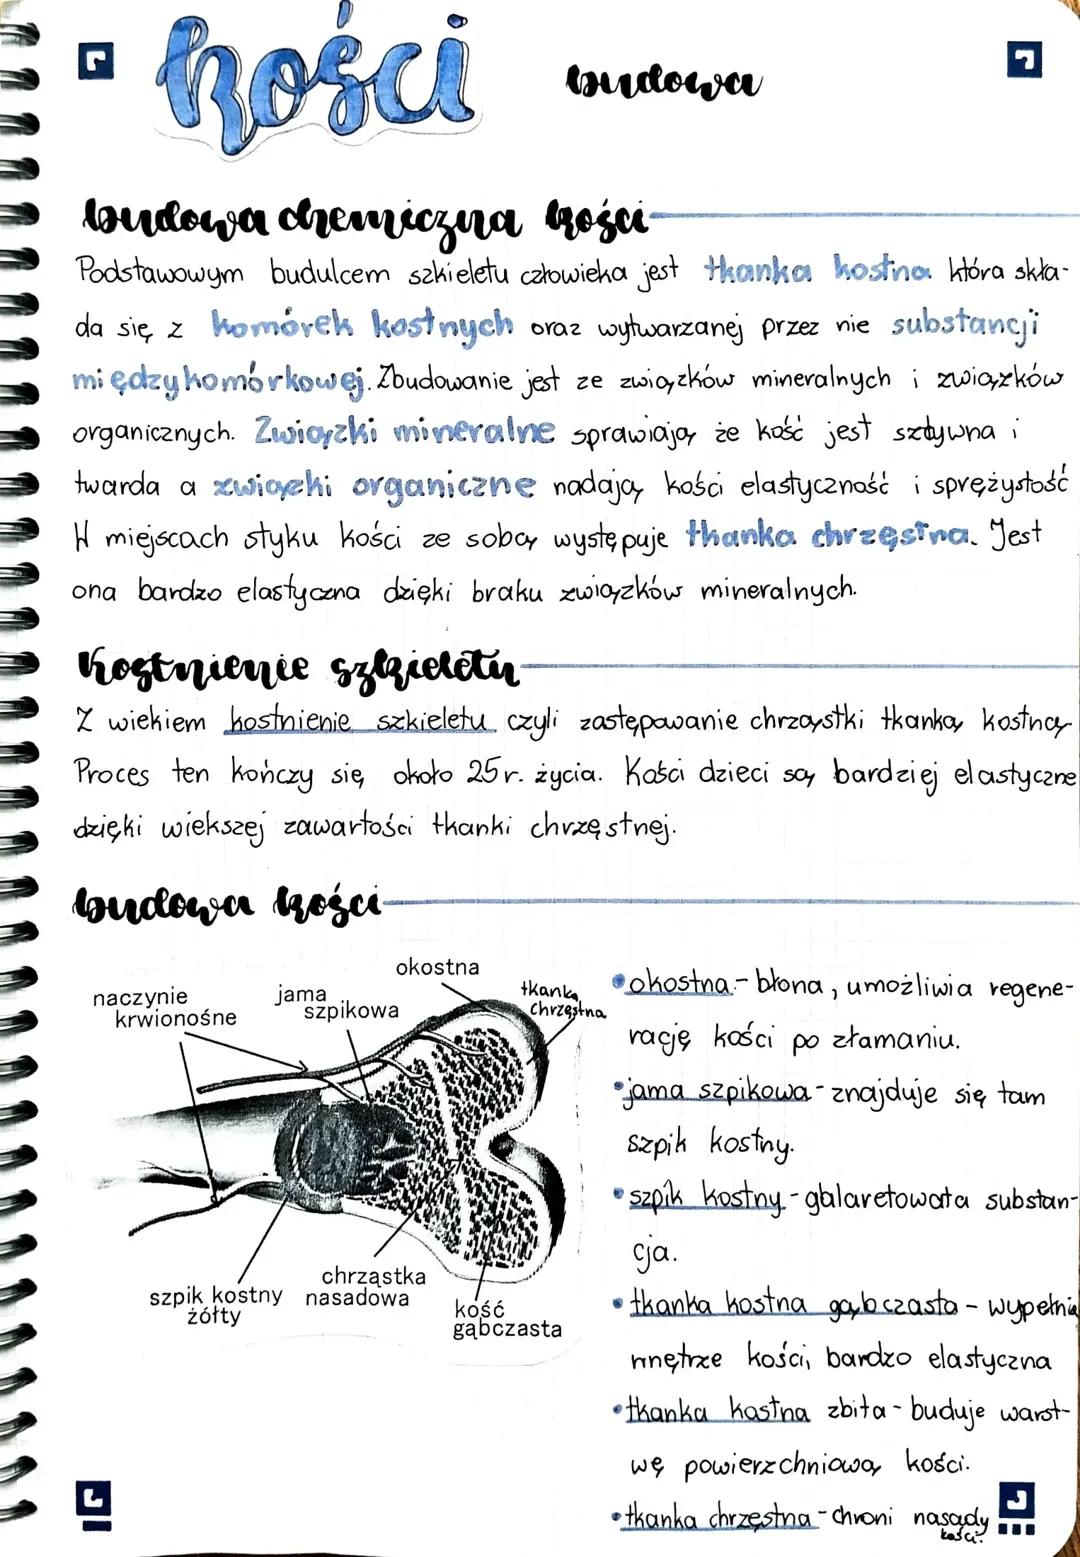 kości budowa
budowa chemiczna kości
Podstawowym budulcem szkieletu człowieka jest tkanka kostna która skła-
da się z komórek kostnych oraz wytwarzanej przez nie substancji
międzykomórkowej. Zbudowanie jest ze związków mineralnych i związków
organicznych. Związki mineralne sprawiają że kość jest sztywna i
twarda a związki organiczne nadają kości elastyczność i sprężystość
W miejscach styku kości ze sobą występuje tkanka chrzęstna. Jest
ona bardzo elastyczna dzięki braku związków mineralnych.
Kostnienie szkieletu
Z wiekiem kostnienie szkieletu czyli zastępowanie chrząstki tkanką kostną
Proces ten kończy się około 25r. życia. Kości dzieci są bardziej elastyczne
dzięki wiekszej zawartości tkanki chrzęstnej.
budowa kości
okostna
naczynie
krwionośne
jama
szpikowa
tkanka
chrzęstna
szpik kostny
żółty
chrząstka
nasadowa
kość
gąbczasta
•okostna - błona, umożliwia regene-
rację kości po złamaniu.
•jama szpikowa - znajduje się tam
szpik kostny.
•szpik kostny - galaretowata substan-
cja.
•tkanka kostna gąbczasta - wypełnia
wnętrze kości, bardzo elastyczna
•tkanka kostna zbita - buduje warst-
wę powierzchniową kości.
•tkanka chrzęstna - chroni nasady
kości.